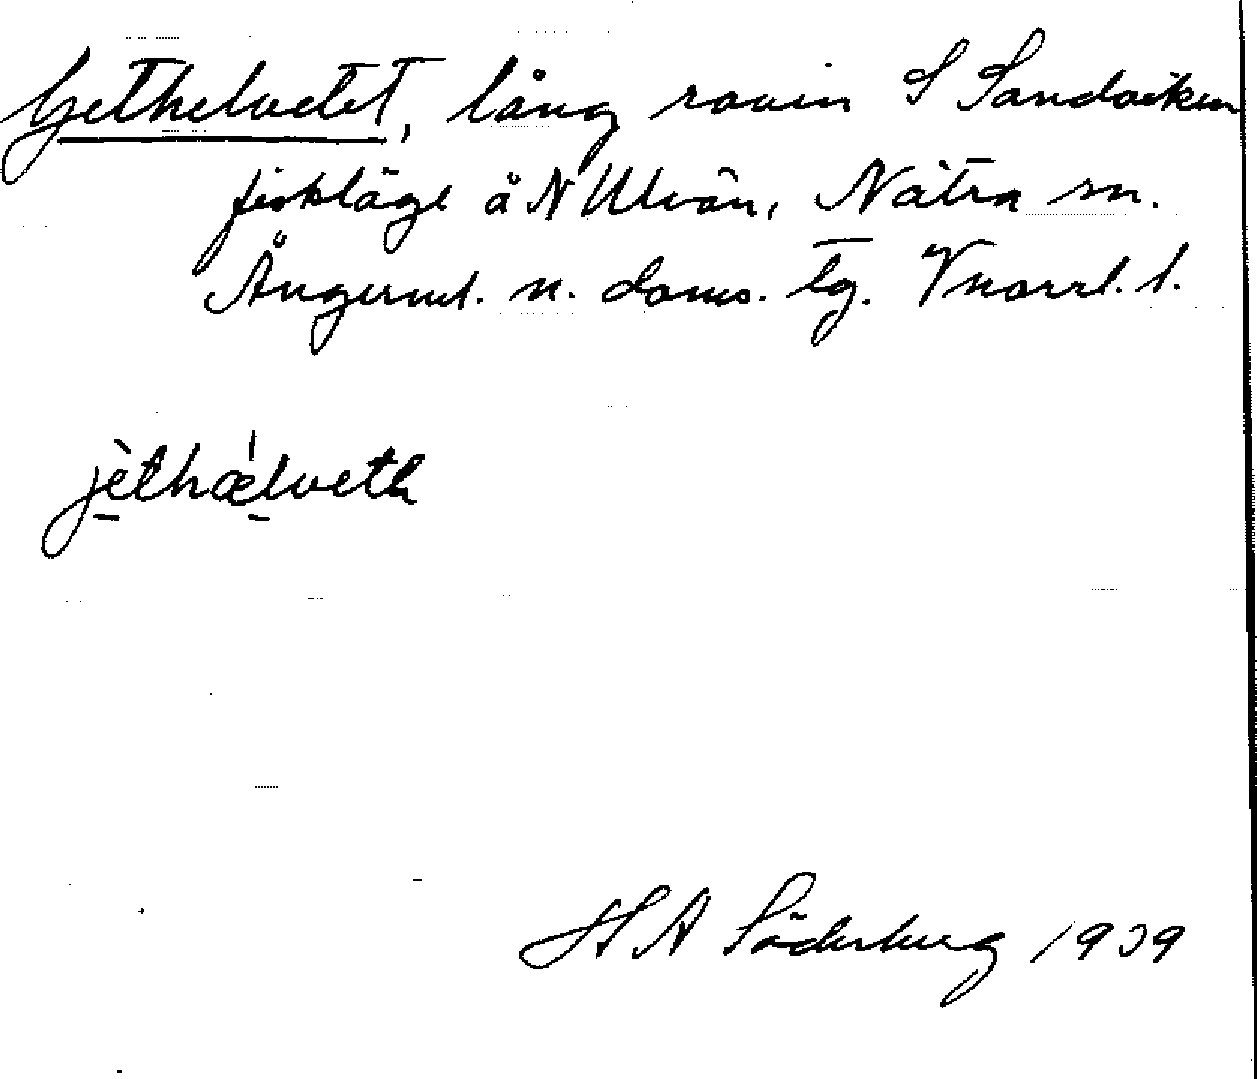 Gethelvetet, lång ravin S Sandviken
fiskläge å N Ulvön, Nätra sn.
Ångerml. n. doms. lg. Vnorrl. l.
jèthǽlvetь
H A Söderberg 1939